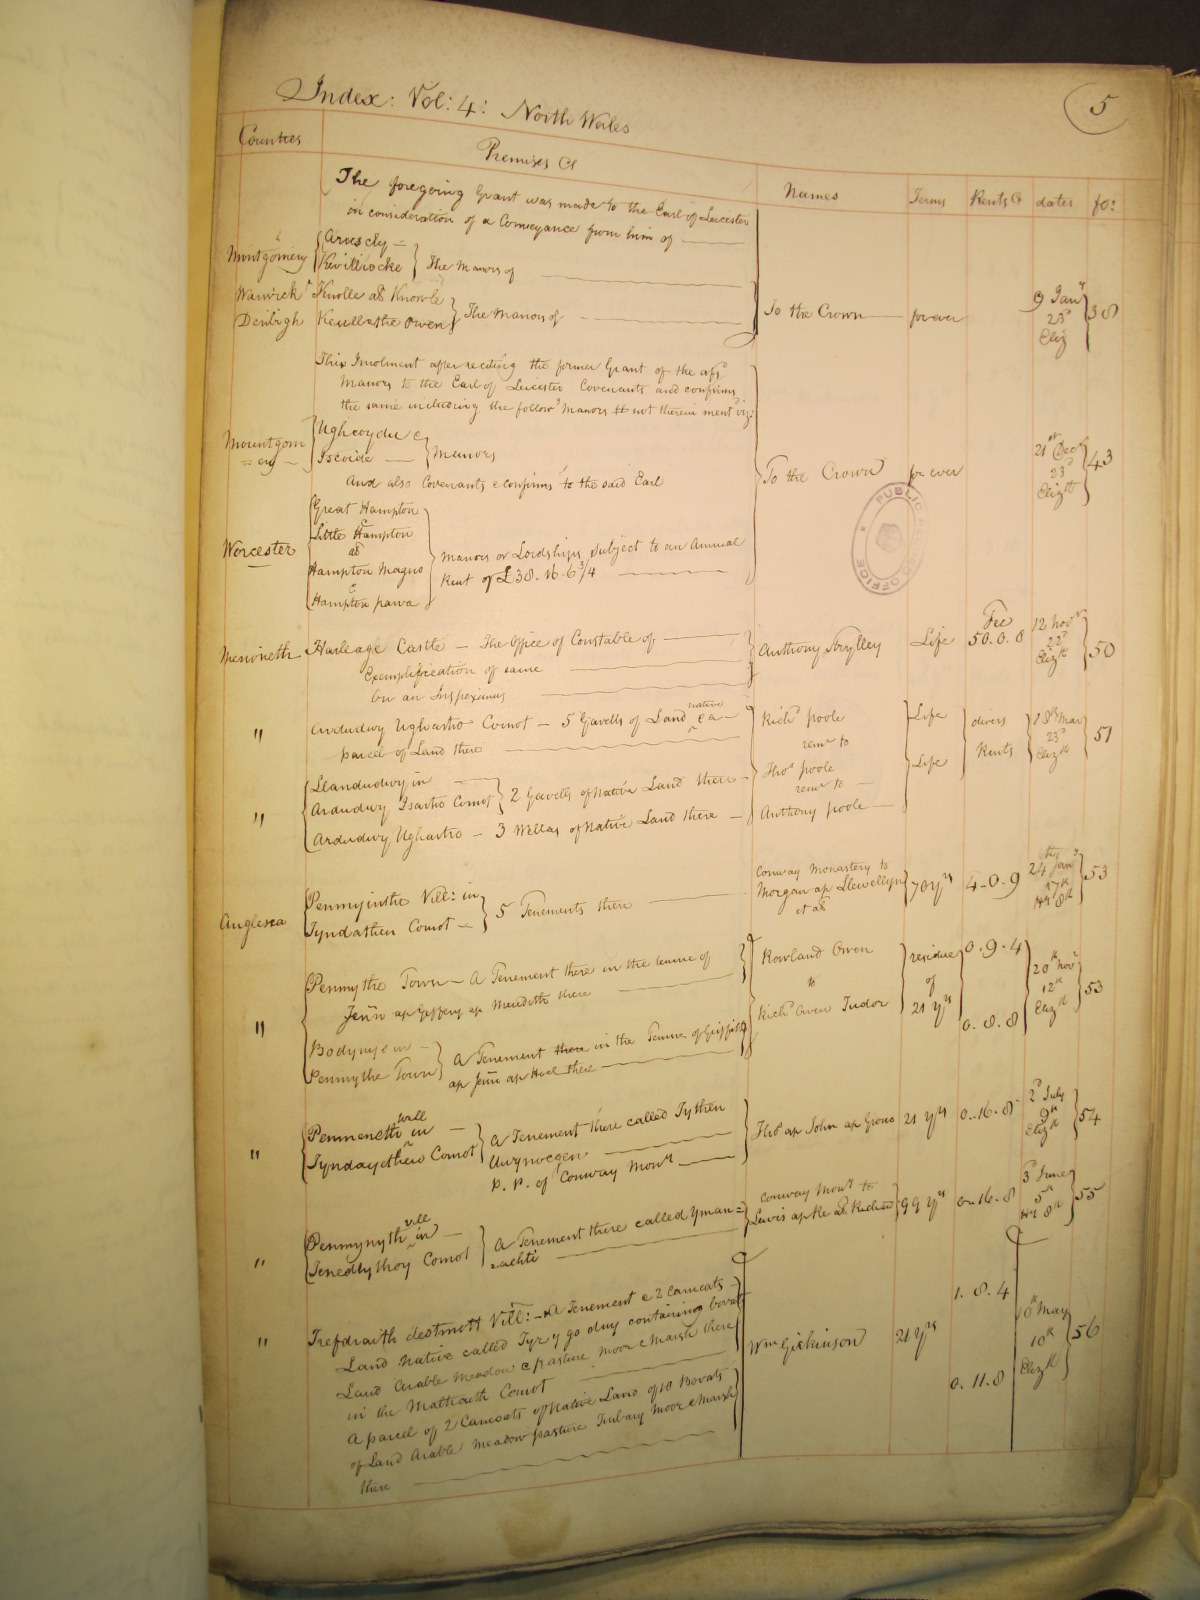 Index: Vol: 4: North Wales
5
Counties
Premises &
Names
Terms
Rents &
dates
fo:
The foregoing Grant was made to the Earl of Leicester
in consideration of a Conveyance from him of
Montgomery
Aruesly
Kevilliocke
The Manors of
Warwick
Knolle als Knowle
Denbigh
The Manors of
To the Crown
for ever
9 Jany
25th
Eliz
38
This Inrolment after reciting the former Grant of the afsd
Manors to the Earl of Leicester Covenants and confirms
the same including the followg Manors not therein mentd viz:
Mountgom
=ery
Ughcoyde &
Iscoide
Manors
And also Covenants & confirms to the said Earl
To the Crown
for ever
21st Decr
23d
Elizth
43
Worcester
Great Hampton
Little Hampton
als
Hampton Magna
&
Hampton parva
Manors or Lordships subject to an Annual
Rent of £38.16.6 3/4
PUBLIC RECORD OFFICE
Merioneth
Harleage Castle — The Office of Constable of
Exemplification of same
On an Inspeximus
Anthony
Life
Fee
50.0.0
12 Novr
22d
Elizth
50
"
Ardudwy Ughartro Comot — 5 Gavells of Land native & a
parcel of Land there
Richd poole
remr to
Thos poole
remr to
Anthony poole
Life
Life
divers
Rents
18th Mar
23d
Elizth
51
"
Llandudwy in
Ardudwy Isartro Comot
2 Gavells of Native Land there
Ardudwy Ughartro — 3 Willas of Native Land there
Anglesea
Penmyinthe Vill: in
Tyndathen Comot
5 Tenements there
Conway Monastery to
Morgan ap Llewellyn
et al
70 yrs
4-0-9
24th Jany
17th
Hy 8th
53
"
Penmythe Town — A Tenement there in the tenure of
ap Meredith there
Rowland Owen
to
Richd Owen Tudor
residue
of
21 yrs
0.9.4
0.8.8
20th Novr
12th
Elizth
53
in
Penmythe Town
A Tenement there in the Tenure of Griffith
ap Jenn ap Hoel there
"
Penmeneth vill in
Comot
A Tenement there called Tythen
P. P. of Conway Mony
Thos ap John ap Grono
21 yrs
0.16.8
2d July
9th
Elizth
54
"
Penmynyth vill in
Comot
A Tenement there called yman=
=achti
Conway Mony to
Lewis ap Re als Richard
99 yrs
0.16.8
3d June
5th
Hy 8th
55
"
Trefdraith destmott Vill: — A Tenement & 2 Camcats
Land Native called Tyr y go duy containing bovats
Land Arable Meadow & pasture moor & Marsh there
in the Maltraith Comot
A parcel of 2 Camcats of Native Land of 10 Bovats
of Land Arable Meadow pasture Turbary Moor & Marsh
there
Wm Gickinson
21 yrs
1.8.4
0.11.8
May
10th
Elizth
56